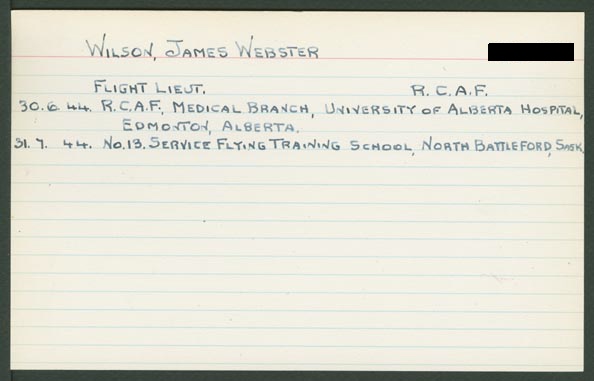 WILSON, JAMES WEBSTER
FLIGHT LIEUT. R.C.A.F.
30.6.44. R.C.A.F., MEDICAL BRANCH, UNIVERSITY OF ALBERTA HOSPITAL,
EDMONTON, ALBERTA.
31.7.44. NO.13. SERVICE FLYING TRAINING SCHOOL, NORTH BATTLEFORD, SASK